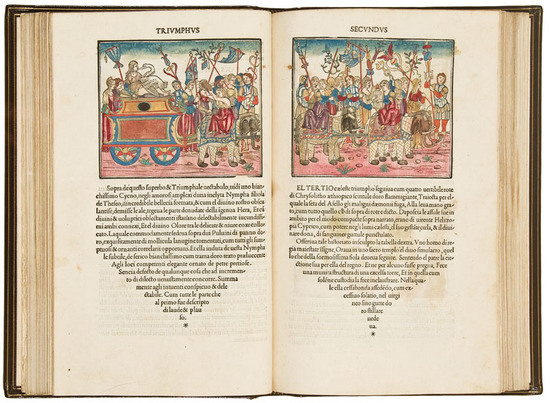 TRIVMPHVS
Sopra de questo superbo & Triumphale uectabulo, uidi uno bian
chissimo Cycno, negli amorosi amplexi duna inclyta Nympha filiola
de Theseo, dincredibile bellecia formata, & cum el diuino rostro obscu
lantise, demisse le ale, tegeua le parte denudate della igenua Hera, Et cū
diuini & uoluptici oblectamenti istauano delectabilmente iucundissi
mi ambi connexi, Et el diuino Olore tra le delicate & niuee coxe collo-
cato. Laquale commodamente sedeua sopra dui Puluini di panno do
ro, exquisitamente di mollicula lanugine tomentati, cum tutti gli sum
ptuosi & ornanti correlarii opportuni. Et ella induta de uesta Nympha
le subtile, de serico bianchissimo cum trama doro texto præluccente
Agli loci competenti elegante ornato de petre pretiose.
Sencia defecto de qualunque cosa che ad incremen-
to di dilecto uenustamente concorre. Summa
mente agli intuenti conspicuo & dele
ctabile. Cum tutte le parte che
al primo fue descripto
di laude & plau
so.
SECVNDVS
EL TERTIO cæleste triumpho seguiua cum quatro uertibile rote
di Chrysolitho æthiopico scintule doro flammigiante, Traiecta per el
quale la seta del Asello gli maligni dæmonii fuga, Alla leua mano gra-
to, cum tutto quello che di sopra di rote è dicto. Daposcia le assule sue in
ambito per el modo compacte sopra narrato, erano di uirente Helitro
pia Cyprico, cum potere negli lumi cælesti, el suo gestāte cæla, & il diuinare
dona, di sanguinee guttule punctulato.
Offeriua tale historiato insculpto la tabella dextra. Vno homo di re
gia maiestate isigne, Oraua in uno sacro templo el diuo simulacro, quel
lo che della formosissima fiola deueua seguire. Sentendo el patre la eie
ctione sua per ella del regno. Et ne per alcuno fusse pregna, Fece
una munita structura di uno excelsa torre, Et in quella cum
solenne custodia la fece inclaustrare. Nella qua
le ella cessabonda assedendo, cum ex-
cessiuo solatio, nel uirgi
neo sino gutte do
ro stillare
uede
ua.